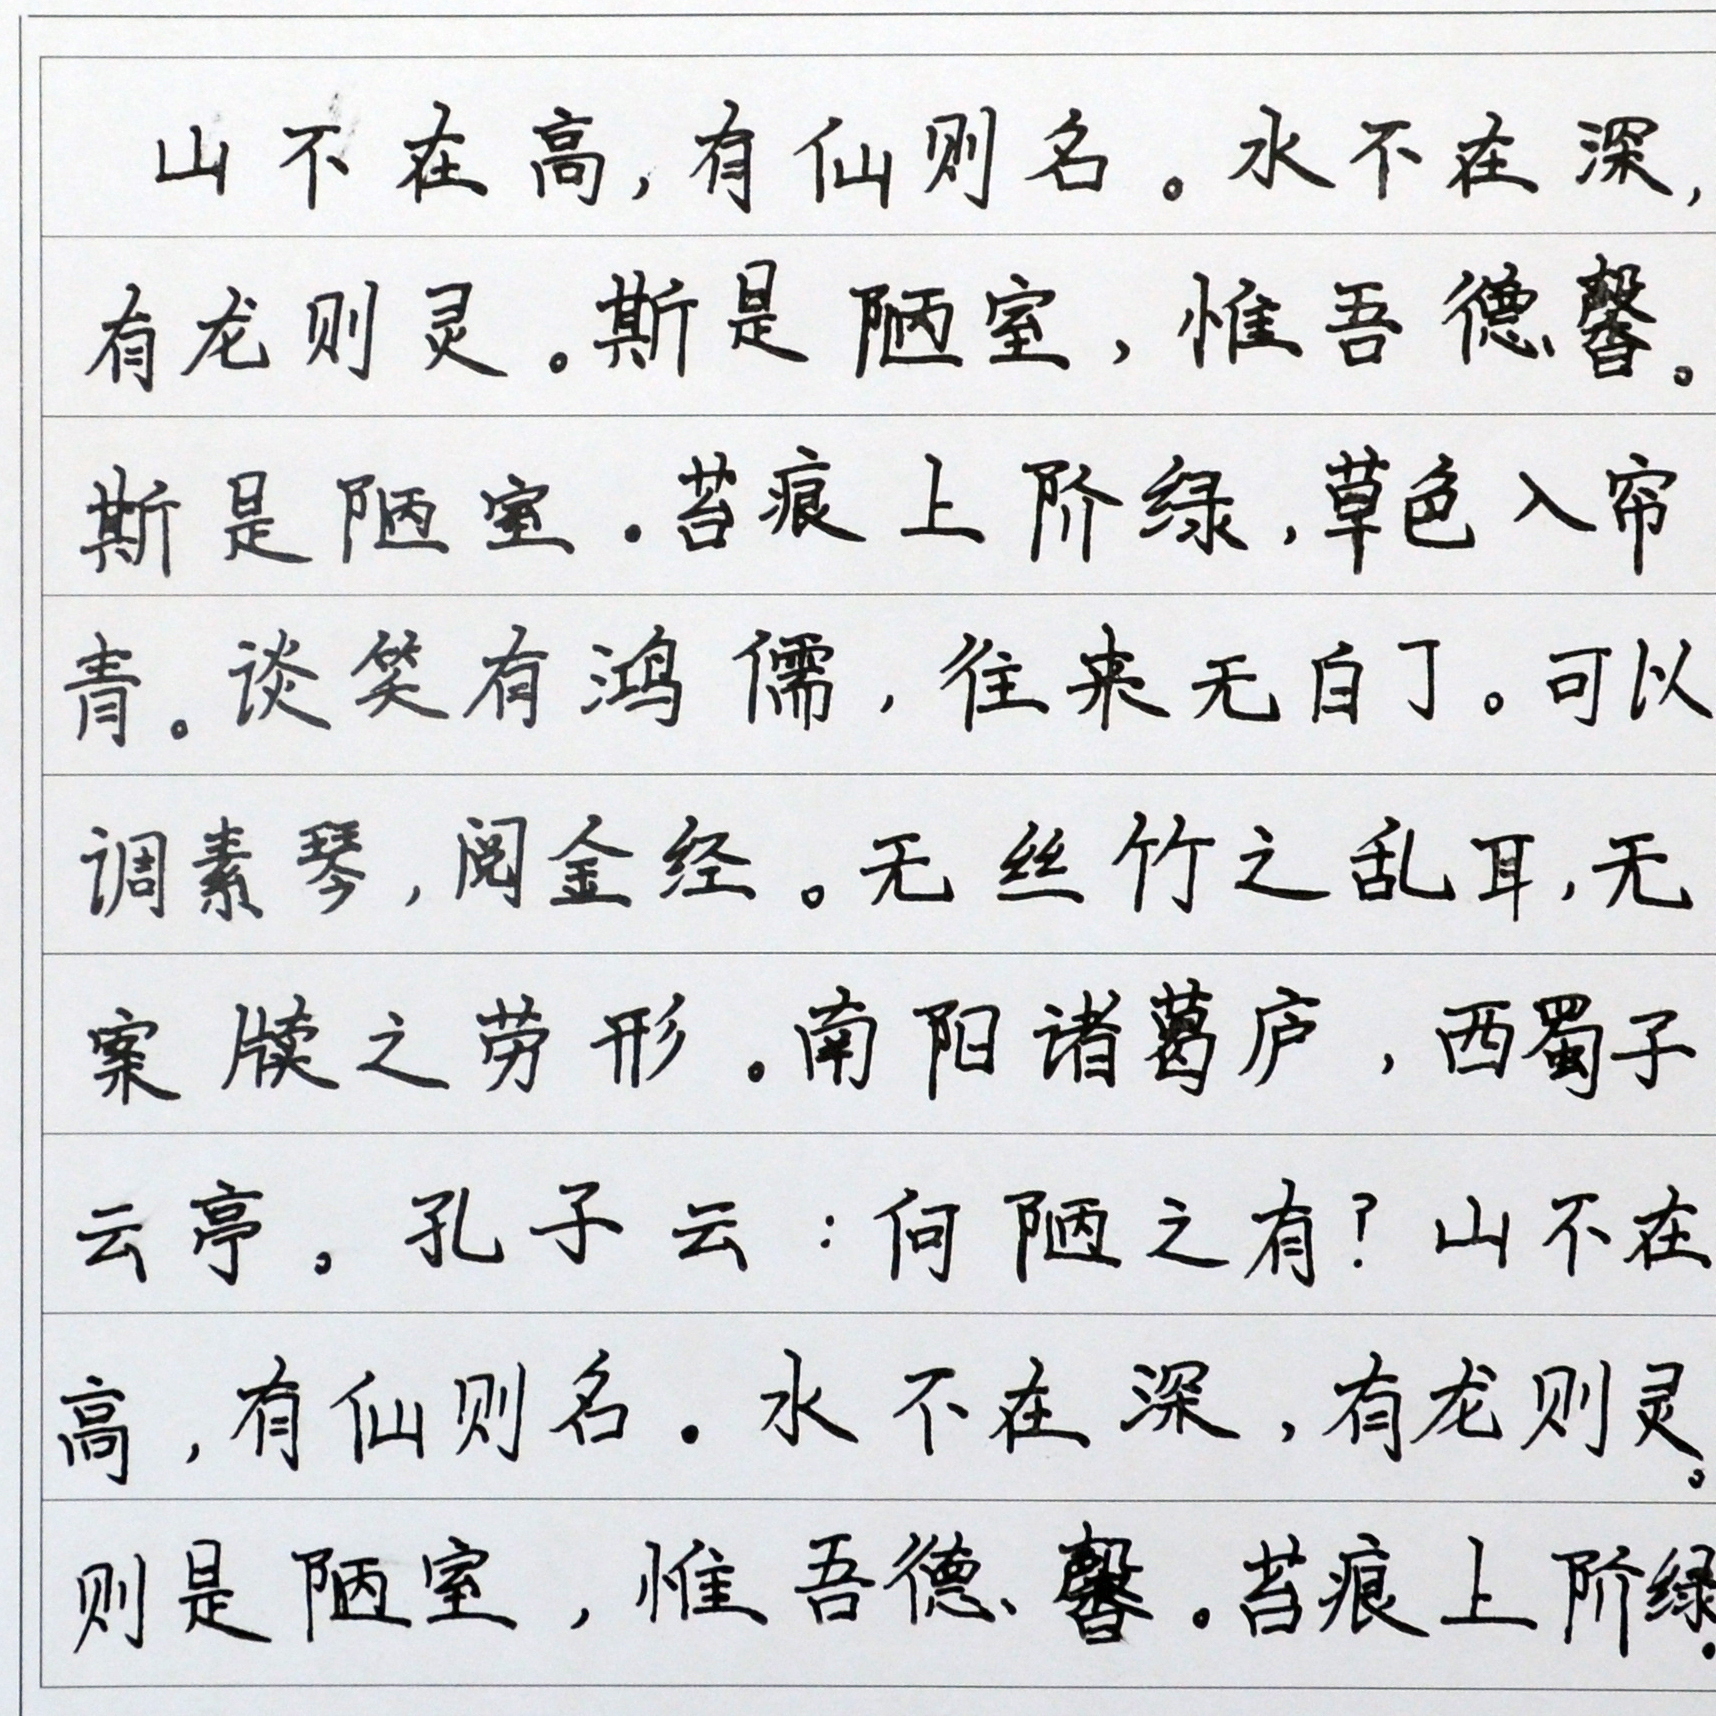 山不在高,有仙则名。水不在深,
有龙则灵。斯是陋室,惟吾德馨。
斯是陋室.苔痕上阶绿,草色入帘
青。谈笑有鸿儒,往来无白丁。可以
调素琴,阅金经。无丝竹之乱耳,无
案牍之劳形。南阳诸葛庐,西蜀子
云亭。孔子云:何陋之有?山不在
高,有仙则名.水不在深,有龙则灵。
则是陋室,惟吾德馨.苔痕上阶绿.